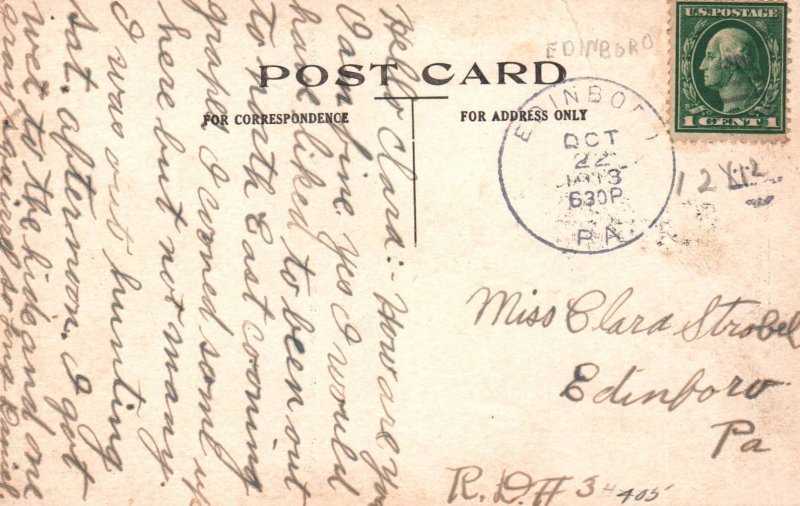 EDINBORO
U.S.POSTAGE
1 CENT 1
POST CARD
FOR CORRESPONDENCE
FOR ADDRESS ONLY
EDINBORO
OCT
22
1913
630P
PA.
12
Miss Clara Strobel
Edinboro
Pa
R.D.#3
405
Hello Clara:- How are you
I am fine. Yes I would
have liked to been out
to North East cooning
grapes. I cooned some up
here but not many.
I was out hunting
Sat. afternoon. I got
wet to the hide and one
gray squirrel so long Daniel